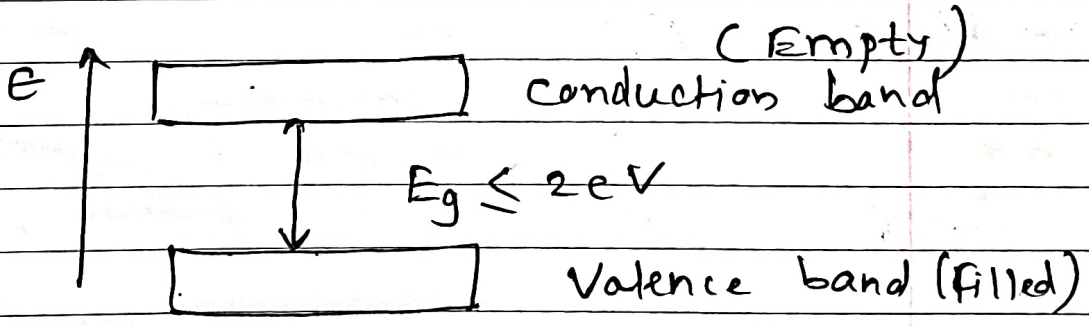 (Empty)
E
conduction band
Eg ≤ 2eV
Valence band (filled)